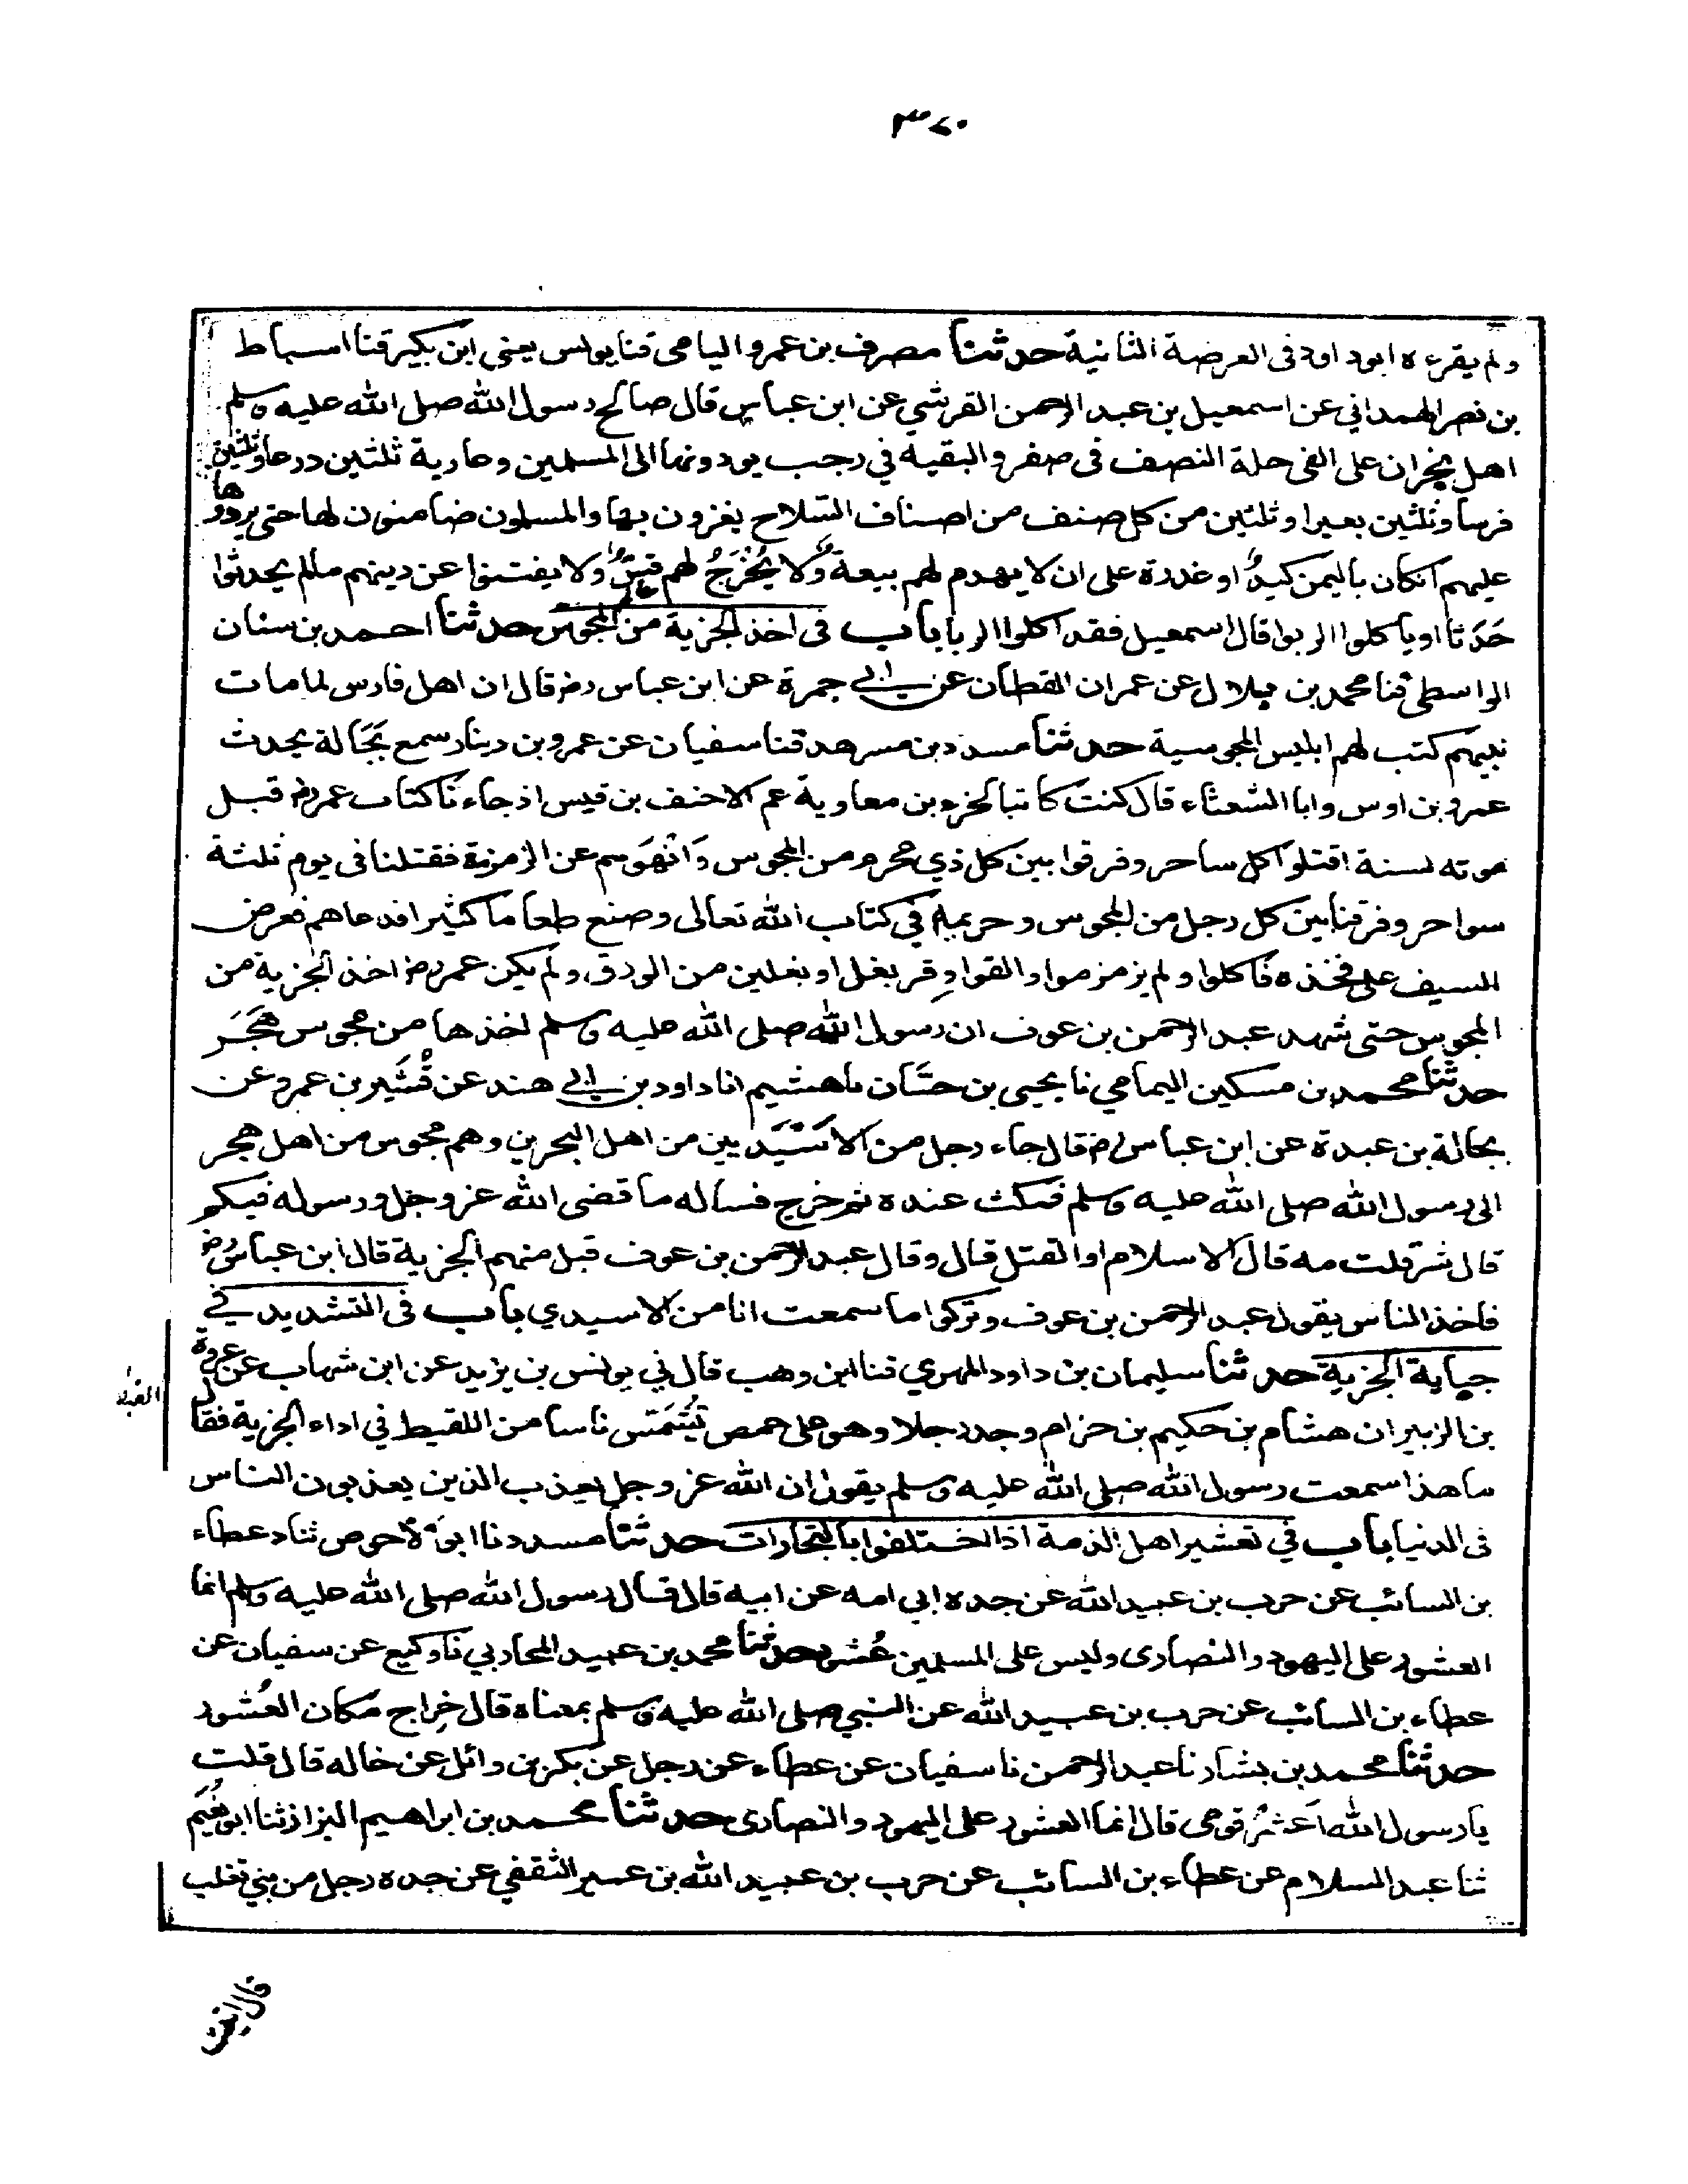 ٣٧٠
ولم يقرءه ابوداود فى العرضة الثانية حدثنا مصرف بن عمرو اليامى قنا يونس يعنى ابن بكير قنا اسباط
بن نصر الهمدانى عن اسمعيل بن عبد الرحمن القرشي عن ابن عباس قال صالح رسول الله صلى الله عليه وسلم
اهل نجران على الفى حلة النصف فى صفر والبقيه في رجب يودونها الى المسلمين وعارية ثلثين درعا وثلثين
فرسا وثلثين بعيرا وثلثين من كل صنف من اصناف السّلاح يغزون بها والمسلمون ضامنون لها حتى يردوها
عليهم انكان باليمن كيدٌ او غدرة على ان لا يهدم لهم بيعة ولا يُخْرَجُ لهم قسٌّ ولا يفتنوا عن دينهم مالم يحدثوا
حَدَثا او ياكلوا الربوا قال اسمعيل فقد اكلوا الربا باب فى اخذ الجزية من المجوس حدثنا احمد بن سنان
الواسطى قنا محمد بن بلال عن عمران القطان عن ابي جمرة عن ابن عباس رضـ قال ان اهل فارس لما مات
نبيهم كتب لهم ابليس المجوسية حدثنا مسدد بن مسرهد قنا سفيان عن عمرو بن دينار سمع بَجَالة يحدث
عمرو بن اوس وابا الشعثاء قال كنت كاتبا لجزء بن معاوية عم الاحنف بن قيس اذ جاءنا كتاب عمر رضـ قبل
موته لسنة اقتلوا كل ساحر وفرقوا بين كل ذي محرم من المجوس وَانْهَوهم عن الزمزمة فقتلنا فى يوم ثلثة
سواحر وفرقنا بين كل رجل من المجوس وحريمه في كتاب الله تعالى وصنع طعاما كثيرا فدعاهم فعرض
السيف على فخذه فاكلوا ولم يزمزموا والقوا وِقر بغل او بغلين من الورق، ولم يكن عمر رضـ اخذ الجزية من
المجوس حتى شهد عبد الرحمن بن عوف ان رسول الله صلى الله عليه وسلم اخذها من مجوس هَجَر
حدثنا محمد بن مسكين اليمامي نا يحيى بن حسَّان نا هشيم انا داود بن ابي هند عن قُشَير بن عمرو عن
بجالة بن عبدة عن ابن عباس رضـ قال جاء رجل من الاسَبَذيين من اهل البحرين وهم مجوس من اهل هجر
الى رسول الله صلى الله عليه وسلم فمكث عنده ثم خرج فساله ما قضى الله عز وجل ورسوله فيكم
قال شر قلت مه قال الاسلام او القتل قال وقال عبد الرحمن بن عوف قبل منهم الجزية قال ابن عباس رضـ
فاخذ الناس بقول عبد الرحمن بن عوف وتركوا ما سمعت انا من الاسيدي باب فى التشديد في
جباية الجزية حدثنا سليمان بن داود المهري قنا ابن وهب قال نى يونس بن يزيد عن ابن شهاب عن عروة
بن الزبير ان هشام بن حكيم بن حزام وجد رجلا وهو على حمص يُشَمّس ناسا من اللقيط في اداء الجزية فقال
ما هذا سمعت رسول الله صلى الله عليه وسلم يقول ان الله عز وجل يعذب الذين يعذبون الناس
فى الدنيا باب في تعشير اهل الذمة اذا اختلفوا بالتجارات حدثنا مسدد نا ابو الاحوص ثنا عطاء
بن السائب عن حرب بن عبيد الله عن جده ابي امه عن ابيه قال قال رسول الله صلى الله عليه وسلم انما
العشور على اليهود والنصارى وليس على المسلمين عُشور حدثنا محمد بن عبيد المحاربي نا وكيع عن سفيان عن
عطاء بن السائب عن حرب بن عبيد الله عن النبي صلى الله عليه وسلم بمعناه قال خِراج مكان العُشور
حدثنا محمد بن بشار نا عبد الرحمن نا سفيان عن عطاء عن رجل عن بكر بن وائل عن خاله قال قلت
يا رسول الله اعَشّرُ قومى قال انما العشور على اليهود والنصارى حدثنا محمد بن ابراهيم البزاز ثنا ابو نُعَيم
ثنا عبد السلام عن عطاء بن السائب عن حرب بن عبيد الله بن عمير الثقفي عن جده رجل من بني تغلب